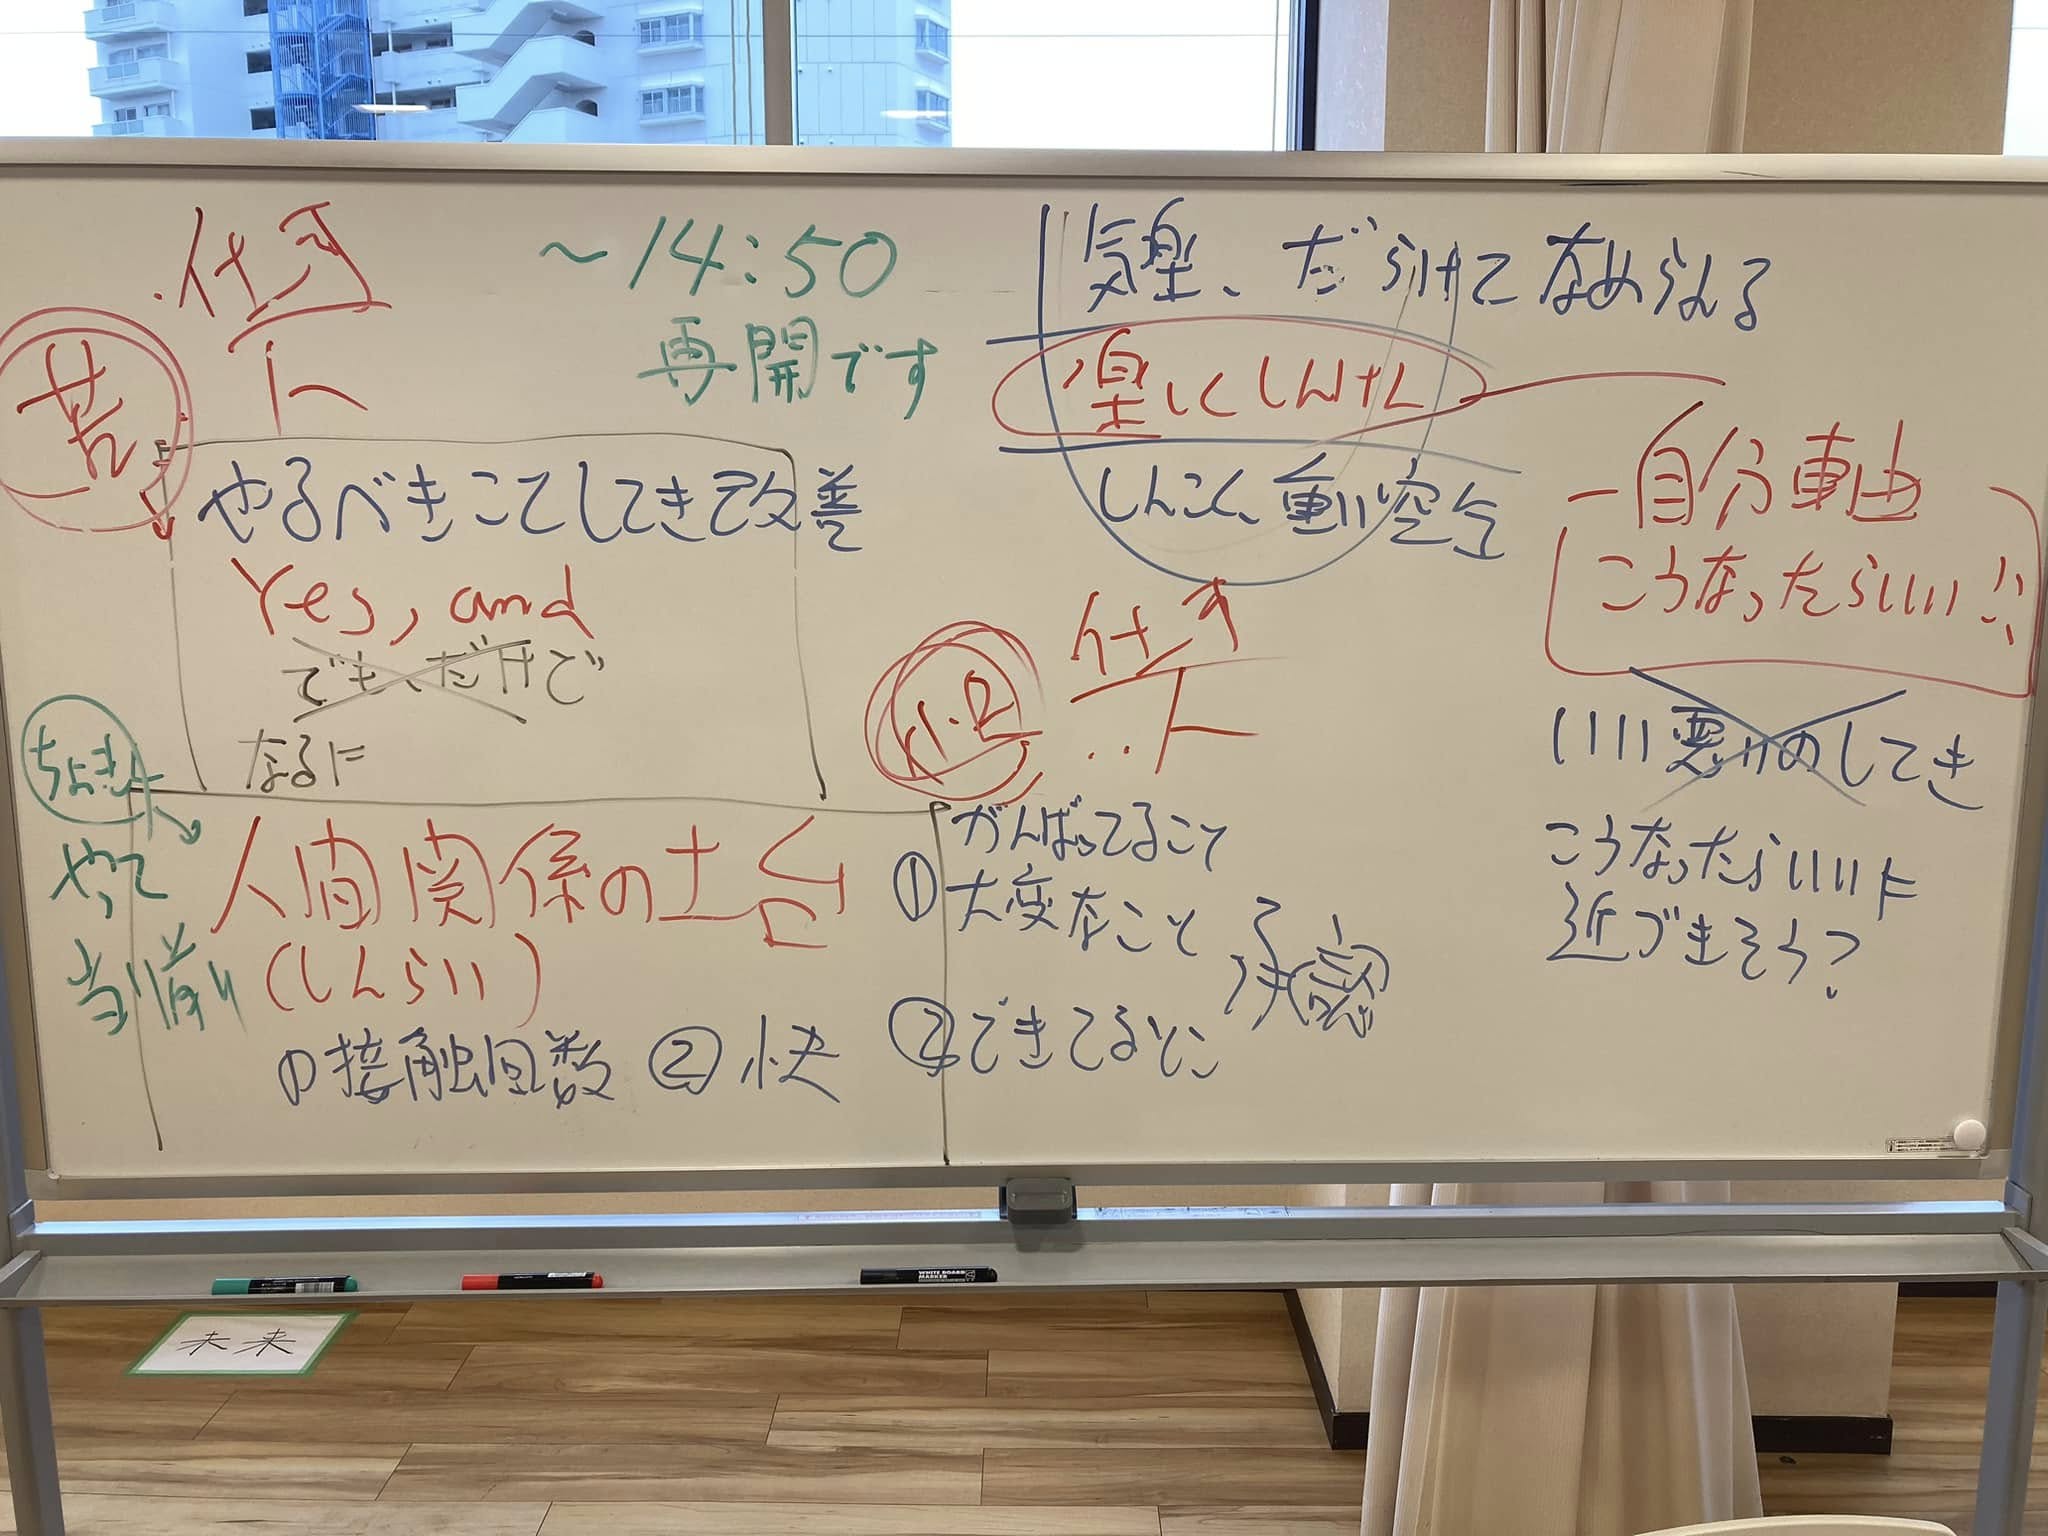 ~14:50
再開です
苦
やるべきことしてき改善
Yes, and
でも、だけど
なるに
ちょきん
やって
当り前
人間関係の土台
(しんらい)
①接触回数 ②快
気楽、だらけてなめられる
楽しくしんけん
しんこく、重い空気
自分軸
こうなったらいい!!
いい悪いのしてき
こうなったらいいに
近づきそう?
がんばってること
①大変なこと
②できてるとこ
承認
WHITE BOARD
MARKER
未来